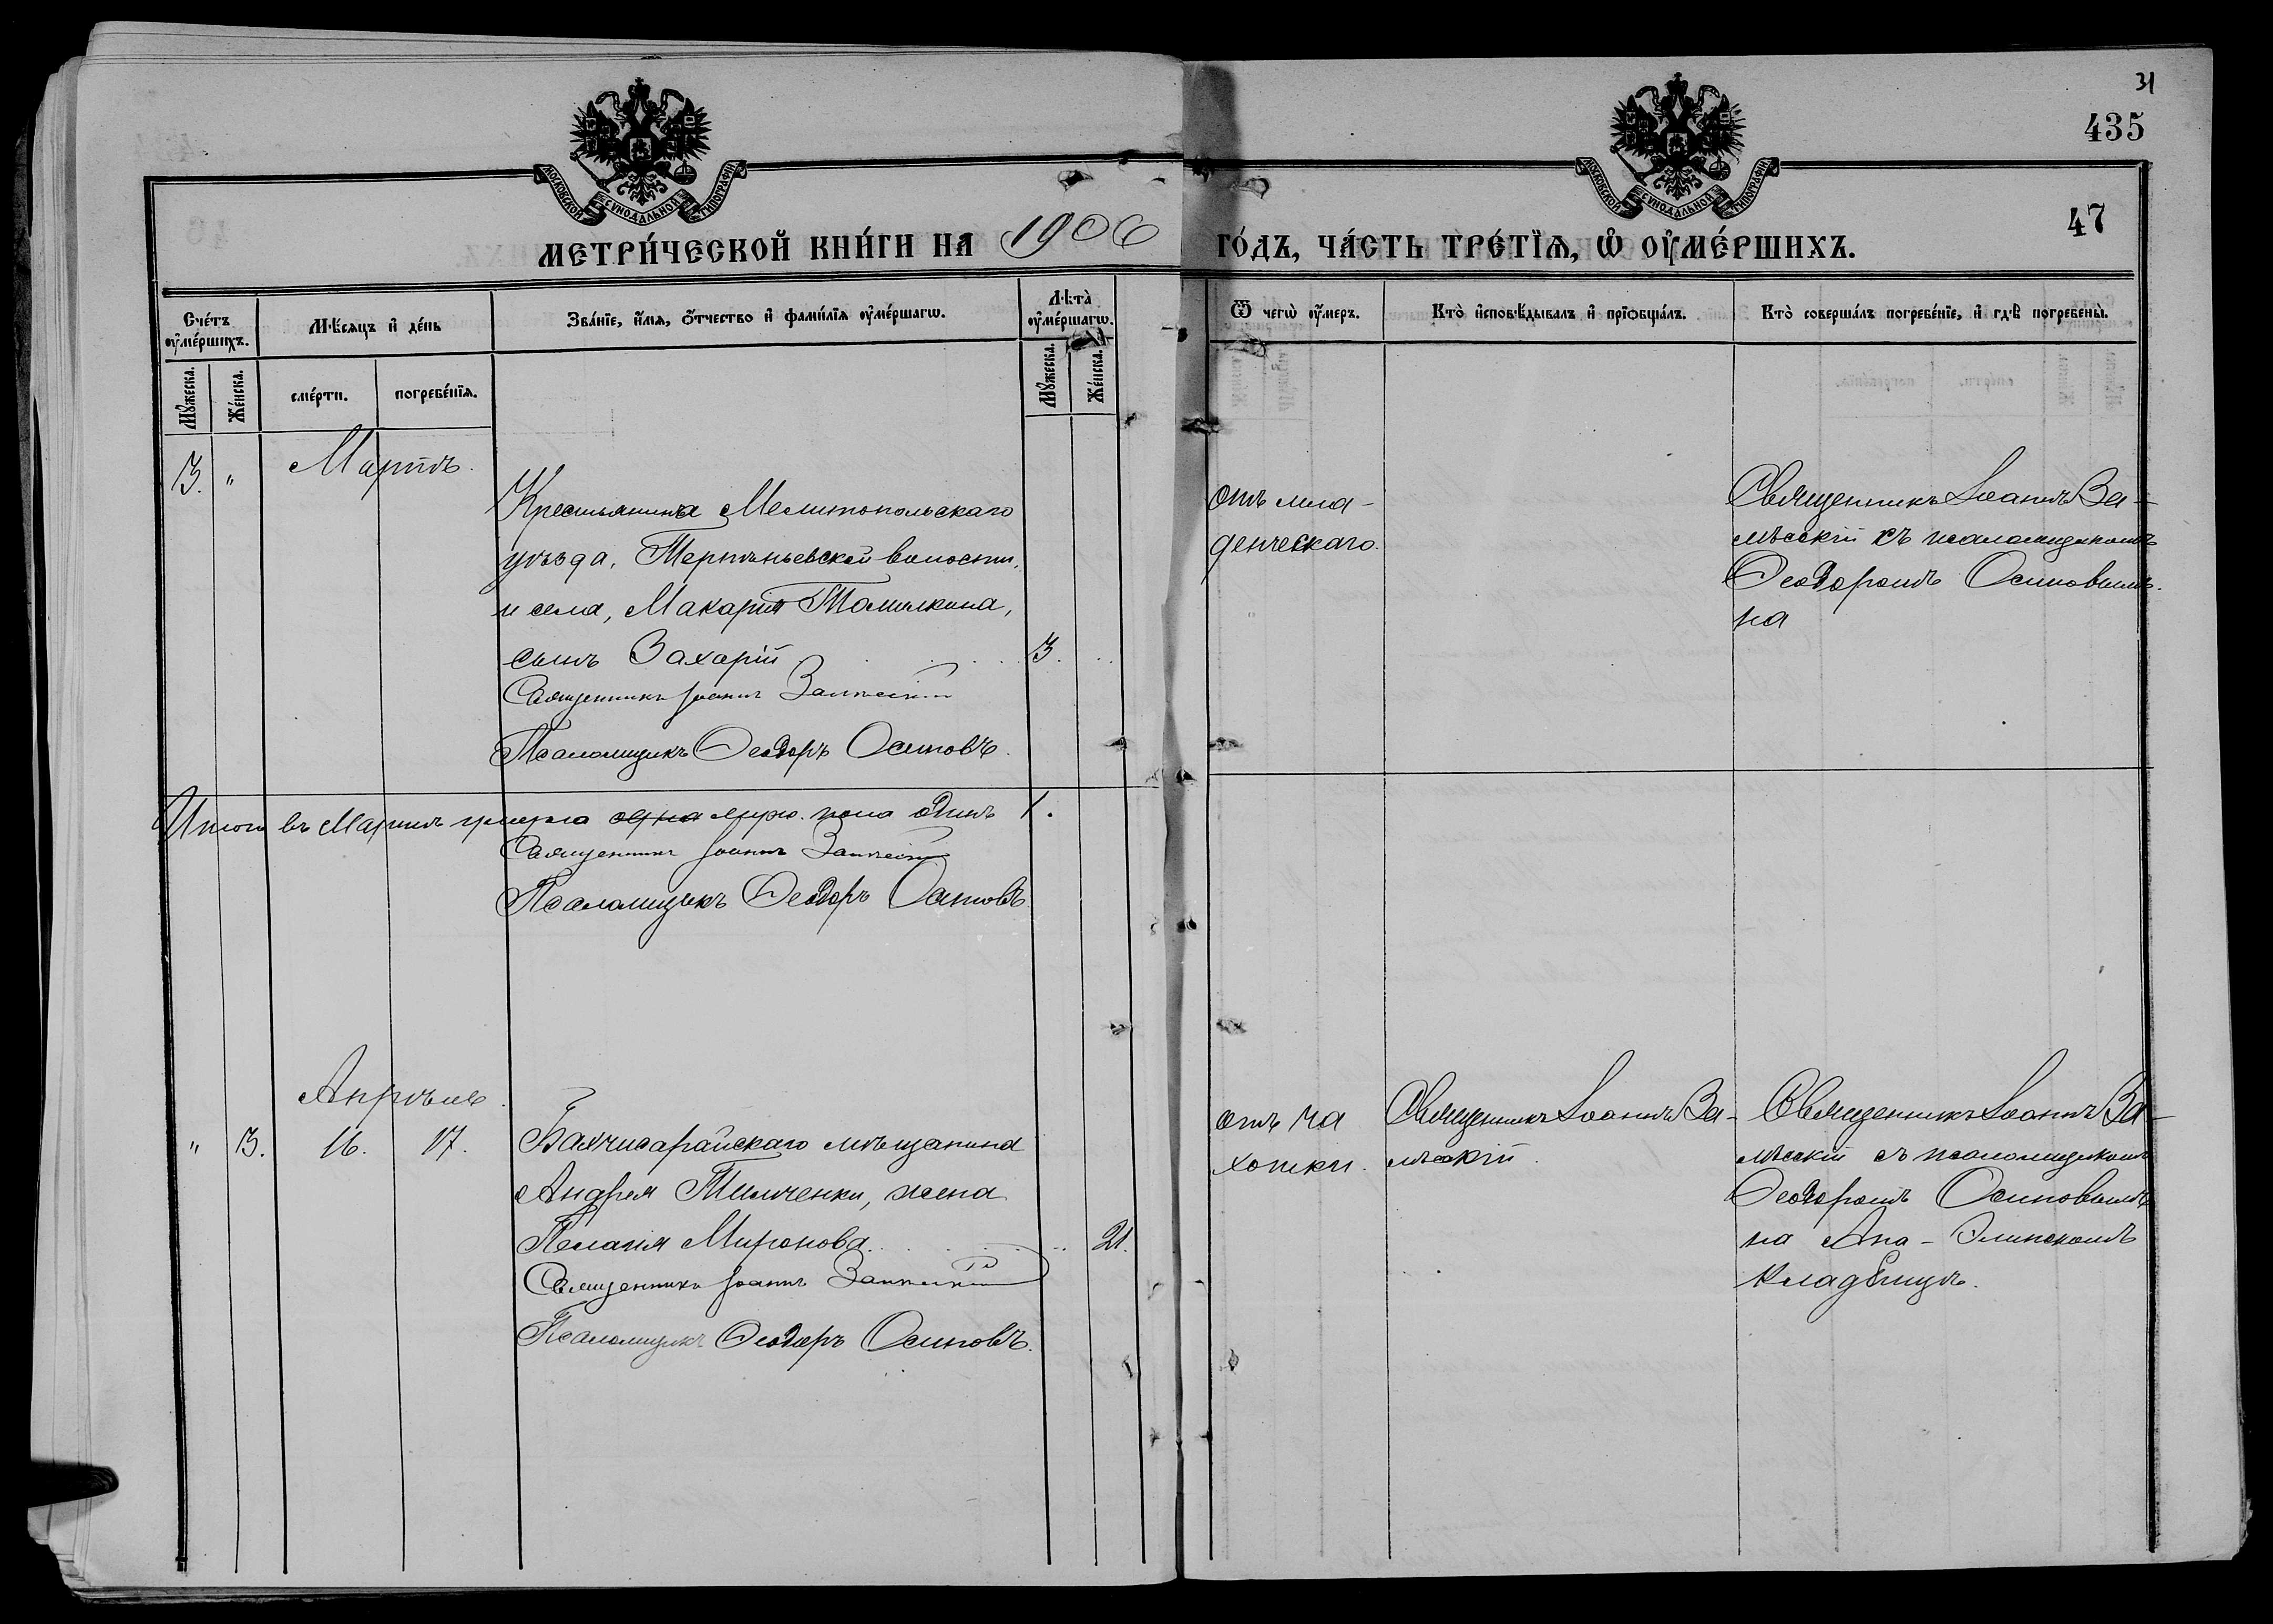 31
435
47
МОСКОВСКОЙ СѴНОДАЛЬНОЙ ТИПОГРАФІИ
МОСКОВСКОЙ СѴНОДАЛЬНОЙ ТИПОГРАФІИ
МЕТРИ́ЧЕСКОЙ КНИ́ГИ НА 1906 ГО́ДЪ, ЧА́СТЬ ТРЕ́ТЇѦ, Ѡ҆ ОУ҆МЕ́РШИХЪ.
Сче́тъ оу҆ме́ршихъ.
Мꙋ́жеска.
Же́нска.
Мѣ́сяцъ и҆ де́нь
сме́рти.
погребе́нїѧ.
Зва́нїе, и҆́мѧ, ѻ҆́тчество и҆ фами́лїѧ оу҆ме́ршагѡ.
Лѣта̀ оу҆ме́ршагѡ.
Мꙋ́жеска.
Же́нска.
Ѿ чегѡ̀ оу҆́меръ.
Кто̀ и҆сповѣ́дывалъ и҆ прїѻбща́лъ.
Кто̀ соверша́лъ погребе́нїе, и҆ гдѣ̀ погребены̀.
3. "
Мартъ.
Крестьянина Мелитопольскаго
уѣзда, Терпѣньевской волости,
и села, Макарія Томилкина,
сынъ Захарій 3.
Священникъ Іоаннъ
Псаломщикъ Ѳеодоръ Осиповъ.
отъ мла-
денческаго.
Священникъ Іоаннъ За-
лѣсскій съ псаломщикомъ
Ѳеодоромъ Осиповымъ.
на
Итого въ Мартѣ умерло одна муж. пола одинъ 1.
Священникъ Іоаннъ
Псаломщикъ Ѳеодоръ Осиповъ
Апрѣль.
" 3. 16. 17.
Бахчисарайскаго мѣщанина
Андрея Тимченки, жена
Пелагія Миронова 21.
Священникъ Іоаннъ
Псаломщикъ Ѳеодоръ Осиповъ.
отъ ча
хотки.
Священникъ Іоаннъ За-
лѣсскій.
Священникъ Іоаннъ За-
лѣсскій съ псаломщикомъ
Ѳеодоромъ Осиповымъ
на Апа-Элинскомъ
кладбищѣ.